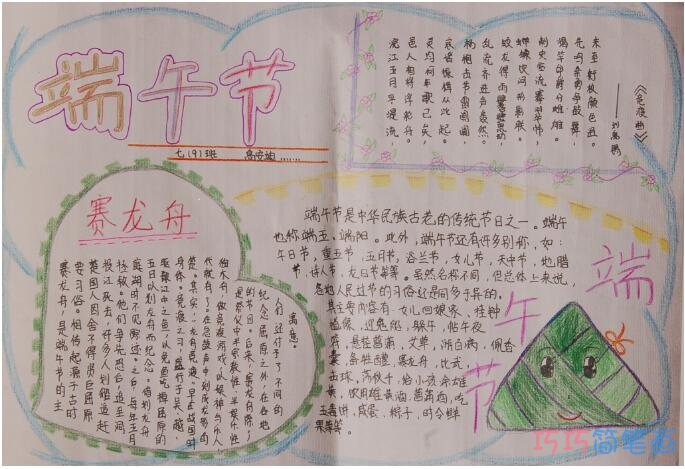 端午节
七(9)班 高安妲……
《竞渡曲》
——刘禹锡
沅江五月平堤流，
邑人相将浮彩舟。
灵均何年歌已矣，
哀谣振楫从此起。
杨桴击节雷阗阗，
乱流齐进声轰然。
蛟龙得雨
赛龙舟
赛龙舟，是端午节的主
要习俗。相传起源于古时
楚国人因舍不得贤臣屈原
投江死去，许多人划船追赶
拯救。他们争先恐后，追至洞
庭湖时不见踪迹。之后每年五月
五日以划龙舟而纪念。借划龙舟
驱散江中之鱼，以免鱼吃掉屈原的
身体。竞渡之习，盛行于吴、越、
楚。其实，“龙舟竞渡”早在战国时
代就有了。在急鼓声中划成龙形的
独木舟，做竞渡游戏，以娱神与乐人，
是祭仪中半宗教性、半娱乐性
的节目。后来，赛龙舟除了
纪念屈原之外，在各地
人们还付予了不同的
寓意。
端午节是中华民族古老的传统节日之一。端午
也称端五、端阳。此外，端午节还有许多别称，如：
午日节，重五节，五月节，浴兰节，女儿节，天中节，地腊
节，诗人节，龙日节等等。虽然名称不同，但总体上来说，
各地人民过节的习俗还是同多于异的。
其主要内容有：女儿回娘家、挂钟
馗像，迎鬼船，躲午，帖午夜
符，悬挂菖蒲，艾草，游百病，佩香
囊，备牲醴，赛龙舟，比武，
击球，荡秋千，给小孩涂雄
黄，饮用雄黄酒，菖蒲酒，吃
五毒饼，咸蛋，粽子，时令鲜
果等等。
端
午
节
1515简笔画